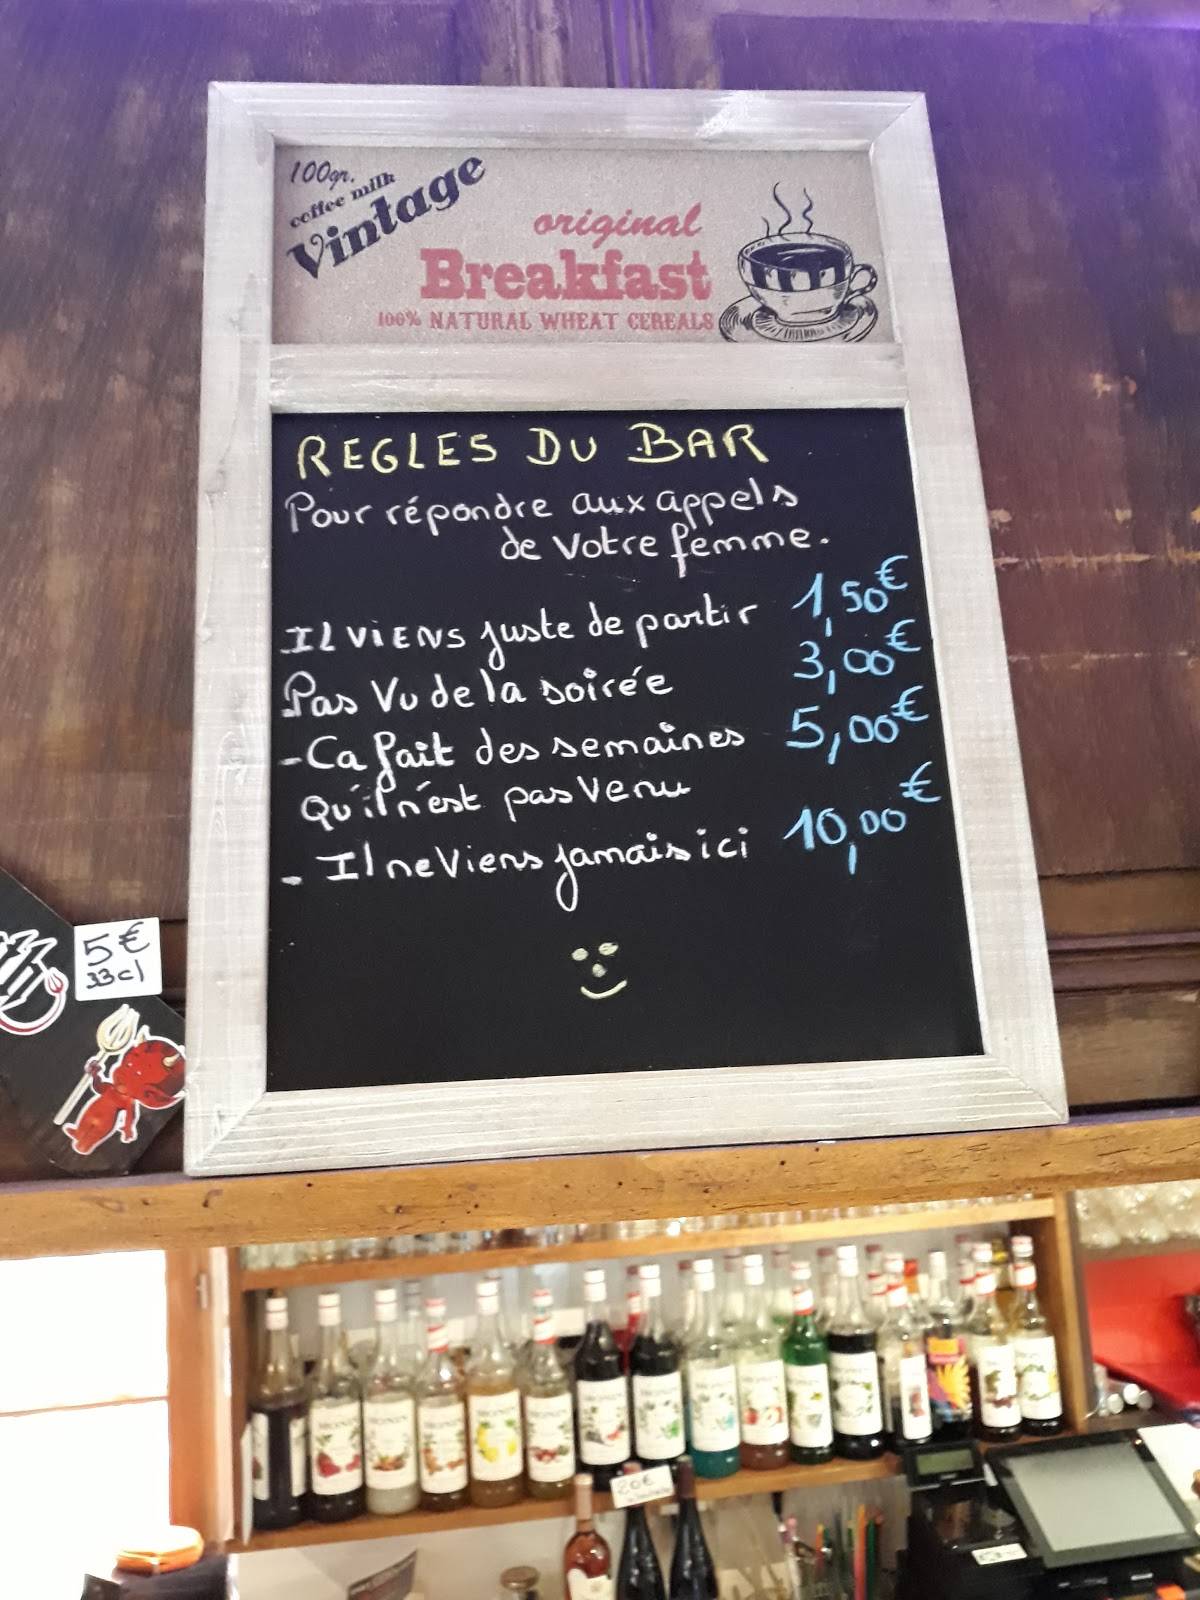 100gr.
coffee milk
Vintage
original
Breakfast
100% NATURAL WHEAT CEREALS
REGLES DU BAR
Pour répondre aux appels
de votre femme.
Il viENS juste de partir 1,50€
Pas Vu de la soirée 3,00€
-Ca fait des semaines 5,00€
Qu'il n'est pas Venu
- Il ne Viens jamais ici 10,00€
5€
33cl
MONIN
MONIN
MONIN
MONIN
MONIN
20€